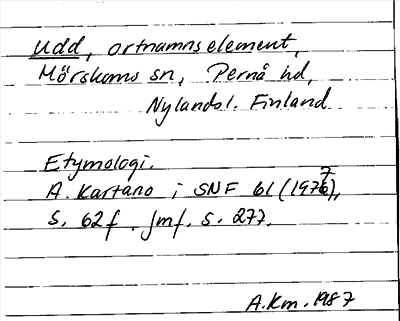 Udd, ortnamnselement,
Mörskoms sn, Pernå hd,
Nylands l. Finland
Etymologi.
A. Kartano i SNF 61 (1977),
s. 62 f. Jmf. s. 277.
A.Km. 1987